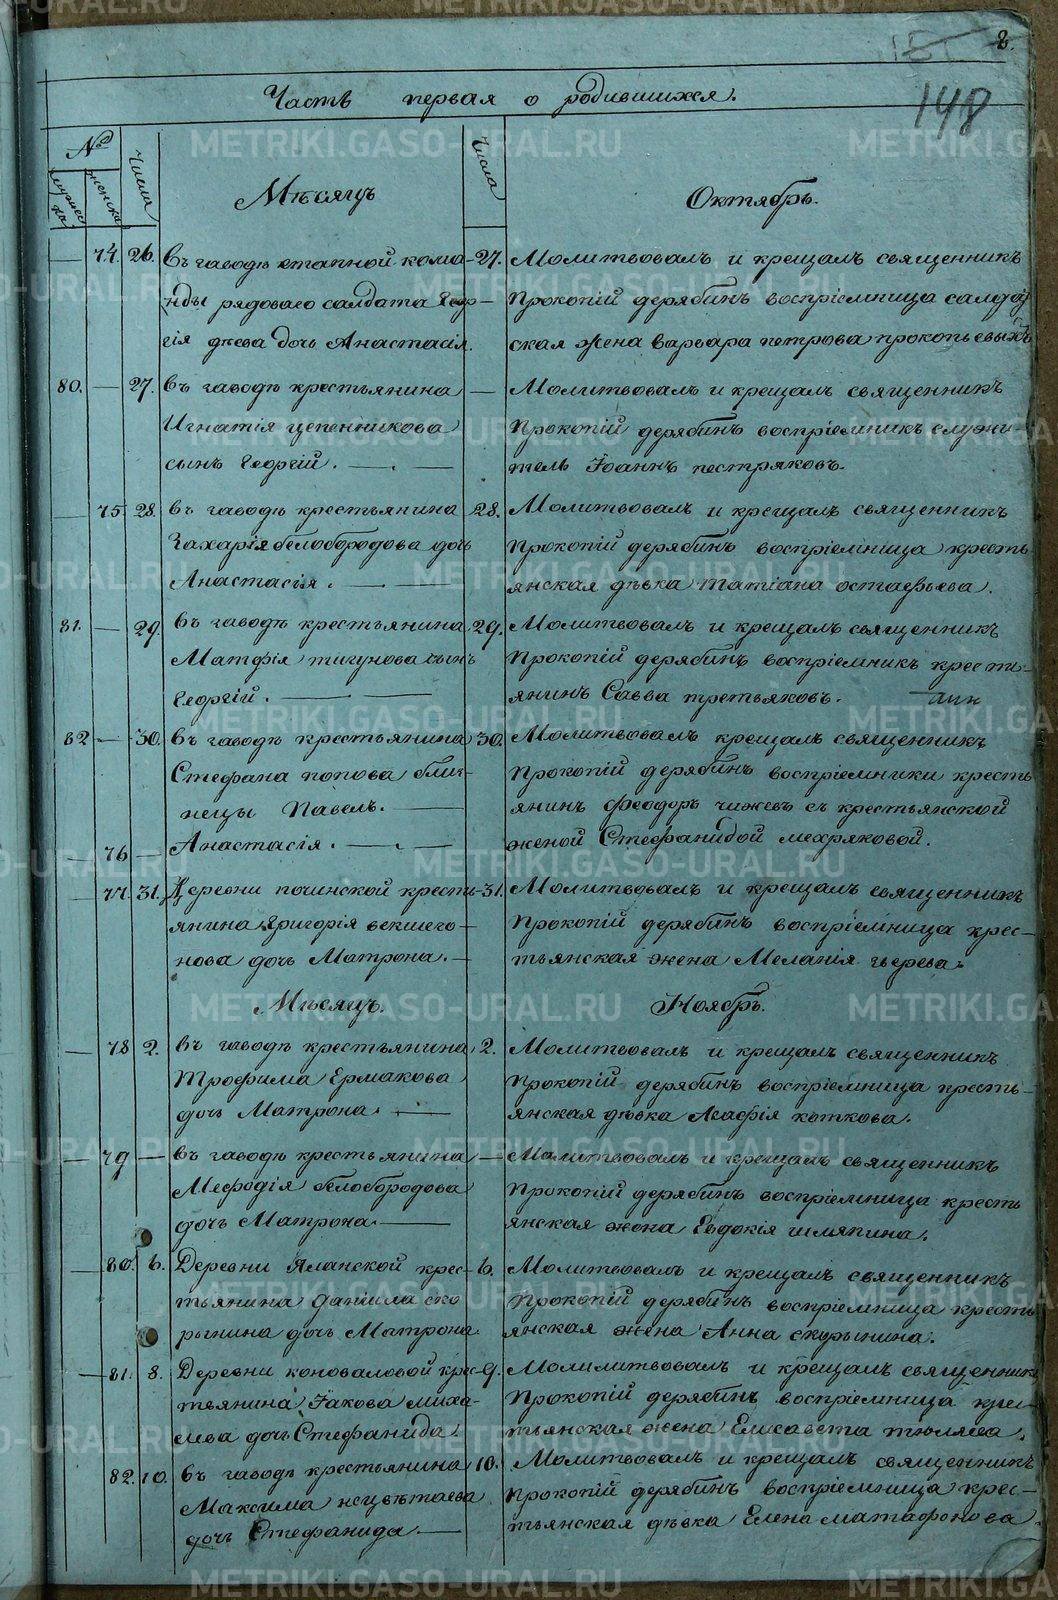 8.
148
Часть первая о родившихся.
№
мужеска
женска
числа
числа
Мѣсяцъ Октябрь.
74. 26. Въ заводѣ етапной кома- 27. Молитвовалъ и крещалъ священникъ
нды рядоваго солдата Геор- Прокопій дерябинъ воспріемница салдат
гія дочь Анастасія. ская жена варвара петрова прокопьевыхъ
80. — 27. Въ заводѣ крестьянина — Молитвовалъ и крещалъ священникъ
Игнатія цепенникова Прокопій дерябинъ воспріемникъ служи-
сынъ Георгій. тель Іоаннъ пестряковъ.
75 28. въ заводѣ крестьянина 28. Молитвовалъ и крещалъ священникъ
Захарія белобородова дочь Прокопій дерябинъ воспріемница кресть
Анастасія. янская дѣвка татіана остафьева.
81. — 29. въ заводѣ крестьянина 29. Молитвовалъ и крещалъ священникъ
Матфія тигунова сынъ Прокопій дерябинъ воспріемникъ кресть-
Георгій. янинъ Савва третьяковъ.
82 — 30. Въ заводѣ крестьянина 30. Молитвовалъ крещалъ священникъ
Стефана попова близ- Прокопій дерябинъ воспріемники кресть
нецы Павелъ. янинъ феодоръ чижевъ съ крестьянской
— 76 — Анастасія. женой Стефанидой мехряковой.
77. 31. Деревни починской кресть- 31. Молитвовалъ и крещалъ священникъ
янина Григорія векшего- Прокопій дерябинъ воспріемница крес-
нова дочь Матрона. тьянская жена Меланія зверева.
Мѣсяцъ. Ноябрь.
— 78 2. въ заводѣ крестьянина 2. Молитвовалъ и крещалъ священникъ
Трофима Ермакова Прокопій дерябинъ воспріемница кресть-
дочь Матрона. янская дѣвка Агафія коткова.
— 79 — въ заводѣ крестьянина — Молитвовалъ и крещалъ священникъ
Мефодія белобородова Прокопій дерябинъ воспріемница кресть
дочь Матрона. янская жена Евдокія шляпина.
— 80. 6. Деревни Яланской крес- 6. Молитвовалъ и крещалъ священникъ
тьянина даніила ско Прокопій дерябинъ воспріемница кресть
рынина дочь Матрона янская жена Анна скорынина.
— 81. 8. Деревни коноваловой крес- 9. Молилитвовалъ и крещалъ священникъ
тьянина Іакова миха- Прокопій дерябинъ воспріемница крес-
лева дочь Стефанида. тьянская жена Елисавета тюляева.
82. 10. въ заводѣ крестьянина 10. Молитвовалъ и крещалъ священникъ
Максима нецвѣтаева Прокопій дерябинъ воспріемница крес-
дочь Стефанида. тьянская дѣвка Елена матафонова.
METRIKI.GASO-URAL.RU